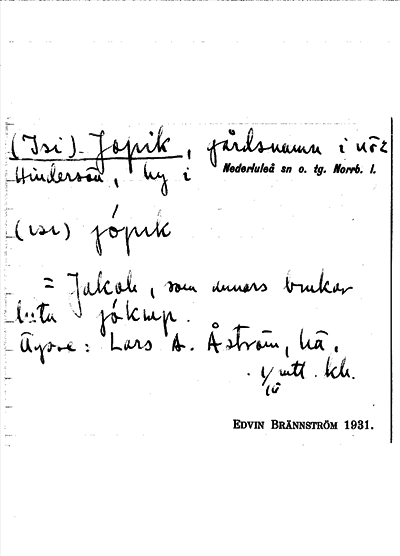 (Isi) Jopik, gårdsnamn i
Hindersön, by i Nederluleå sn o. tg. Norrb. l.
(ɪsɪ) jópɪk
= Jakob, som annars brukar
jókɷp.
Lars A. Åström,
EDVIN BRÄNNSTRÖM 1931.